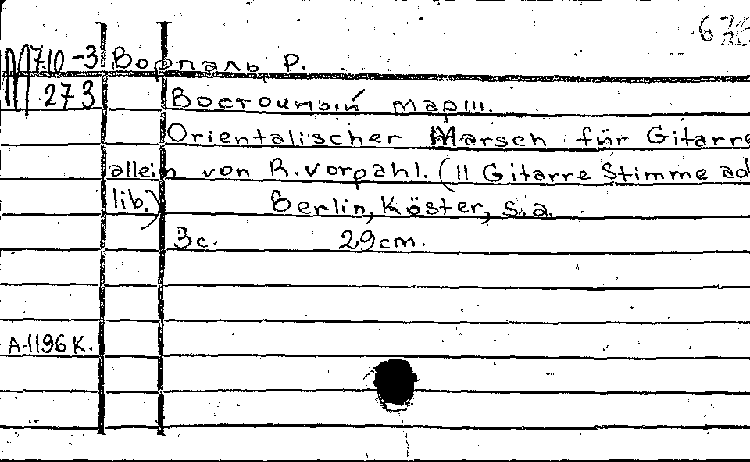 М710-3 Ворпаль, Р.
273 Восточный марш.
Orientalischer Marsch für Gitarre
allein von R. Vorpahl. (II Gitarre Stimme ad
lib.) Berlin, Köster, s.a.
3 с. 29 cm.
А-1196 к.